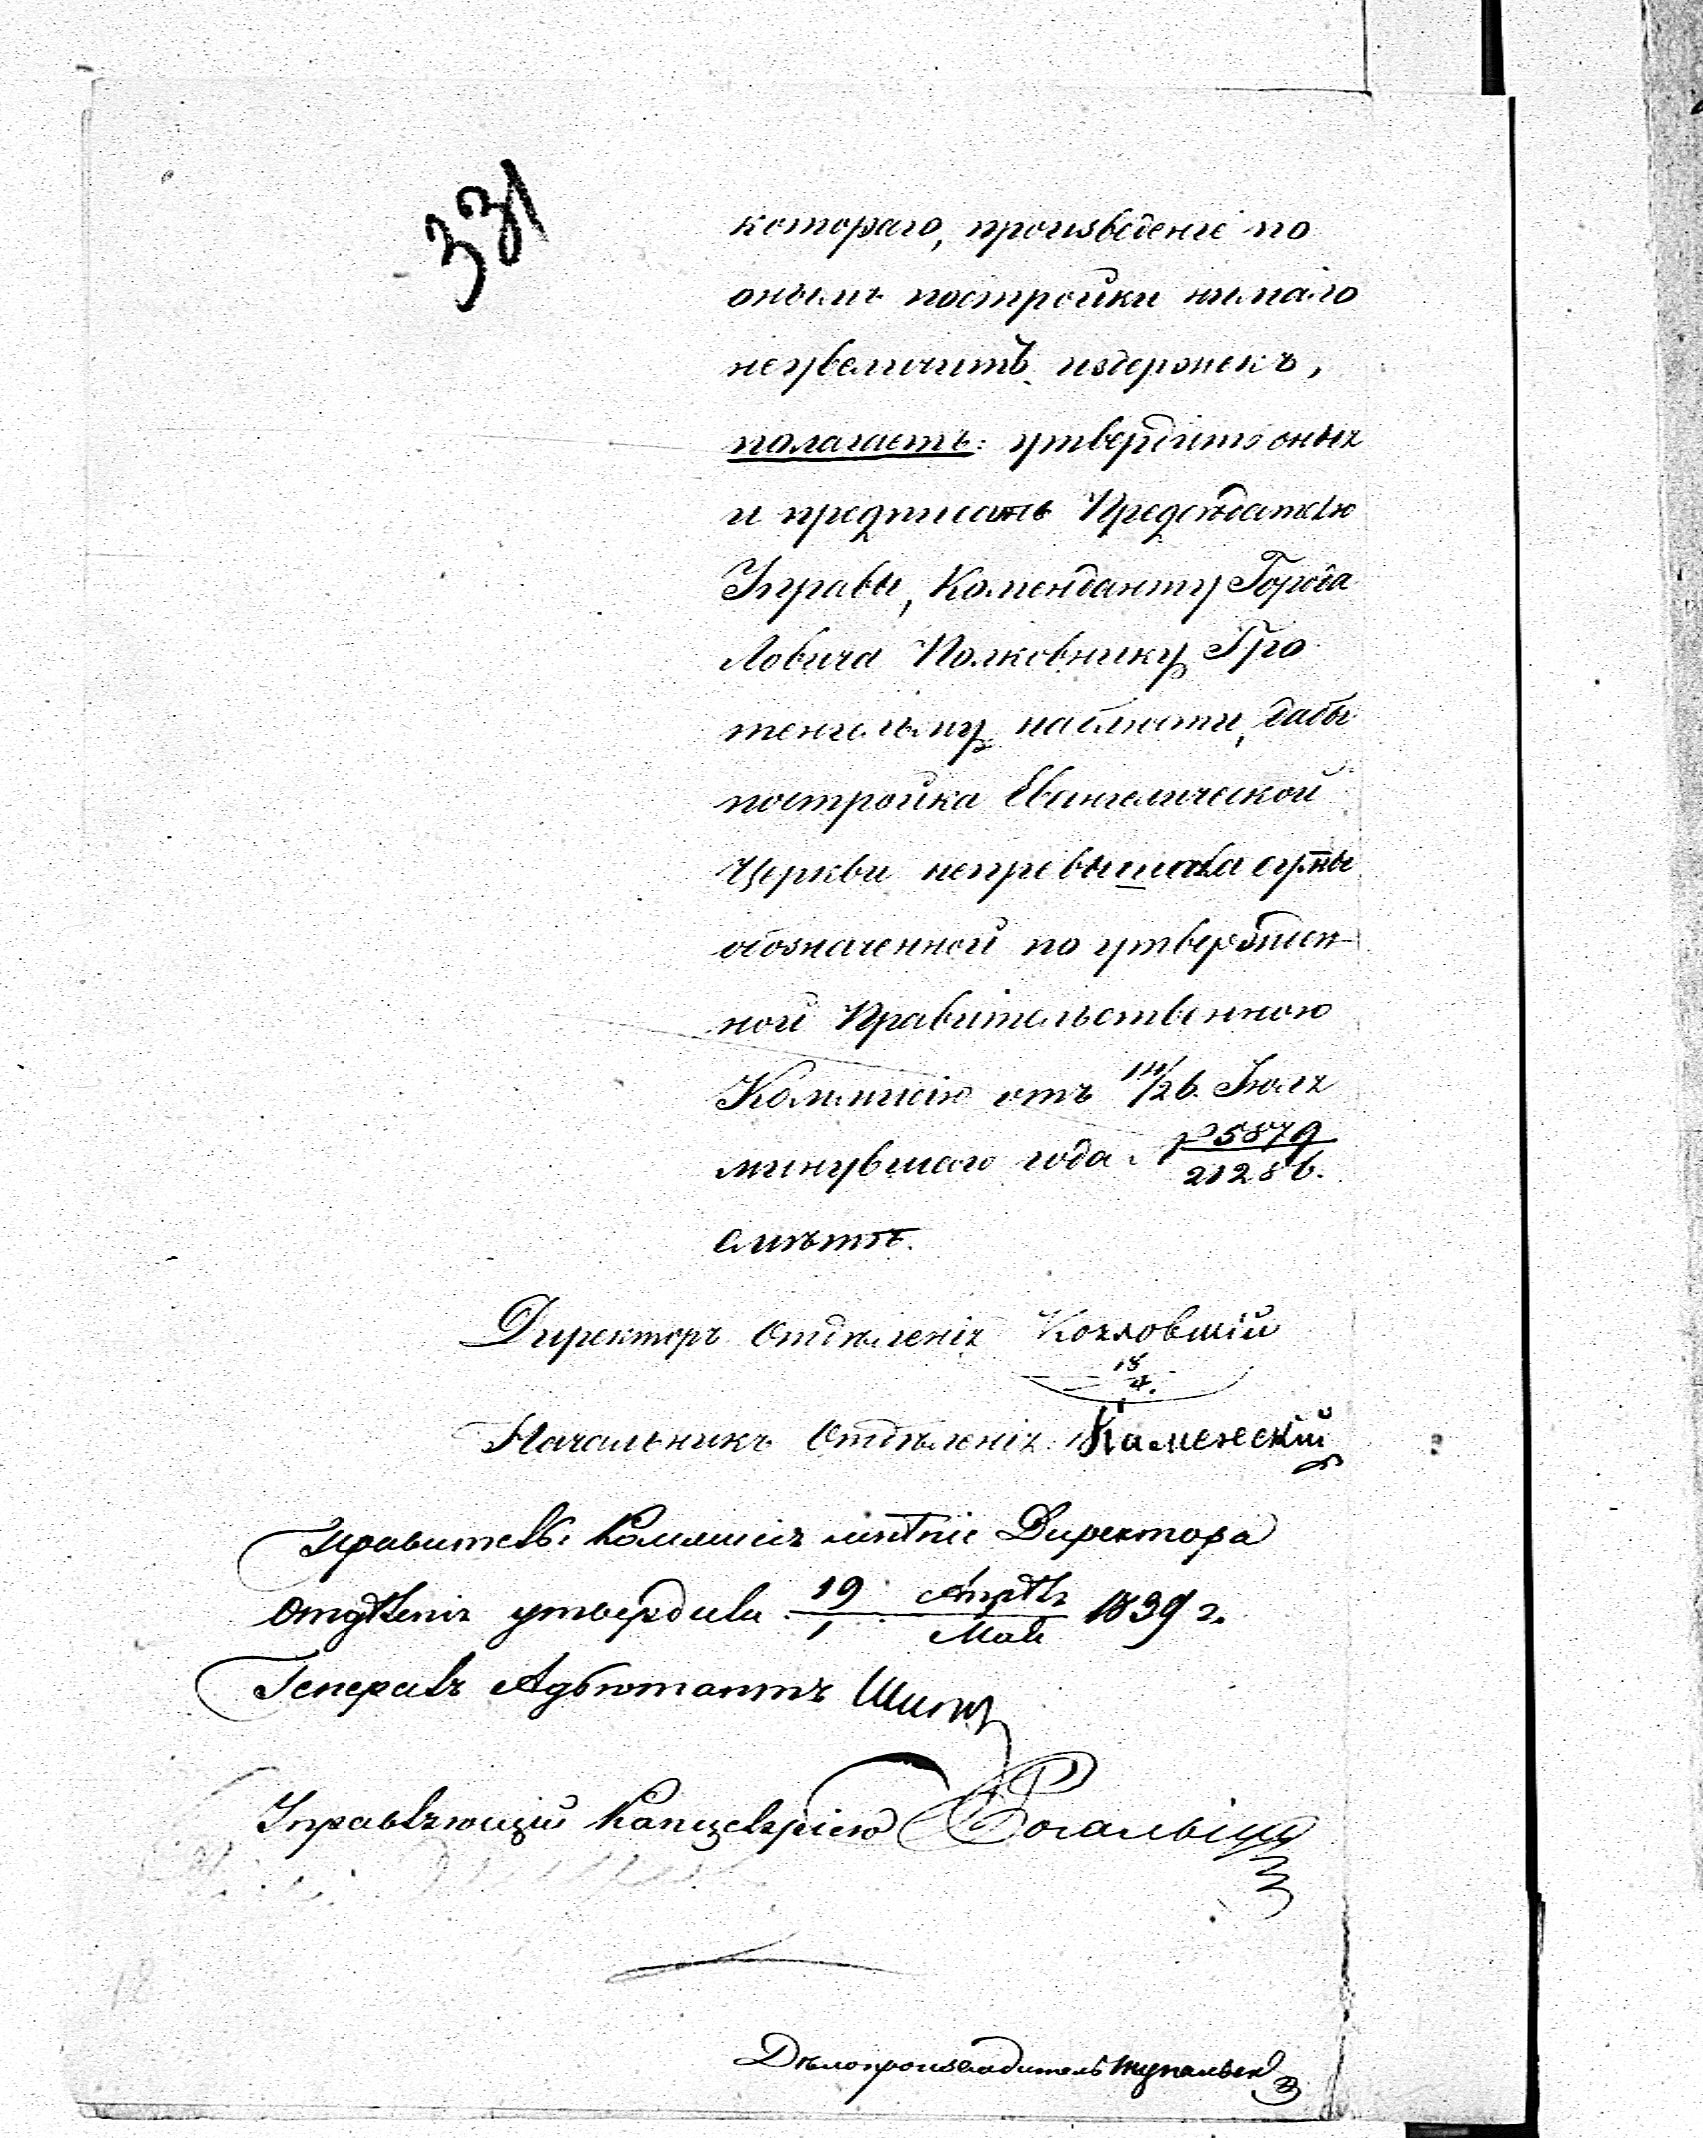 331
котораго, произведеніе по
онымъ постройки нимало
неувеличитъ издержекъ,
полагаетъ: утвердить оныя
и предписать Предсѣдателю
Управы, Коменданту Города
Ловича Полковнику Гро
тенгельму наблюсти, дабы
постройка Евангелической
Церкви непревышала суммы
обозначенной по утвержден
ной Правительственною
Коммисіею отъ 14/26. Іюля
минувшаго года № 5879/21286.
смѣтѣ.
Директоръ Отдѣленія Козловскій
18/4.
Начальникъ Отдѣленія Каменскій
Правителъ. Коммисія мнѣніе Директора
Отдѣленія утвердила 19 Апрѣля/1 Маія 1839 г.
Генералъ Адъютантъ Шиповъ
Управляющій Канцеляріею
Дѣлопроизводитель